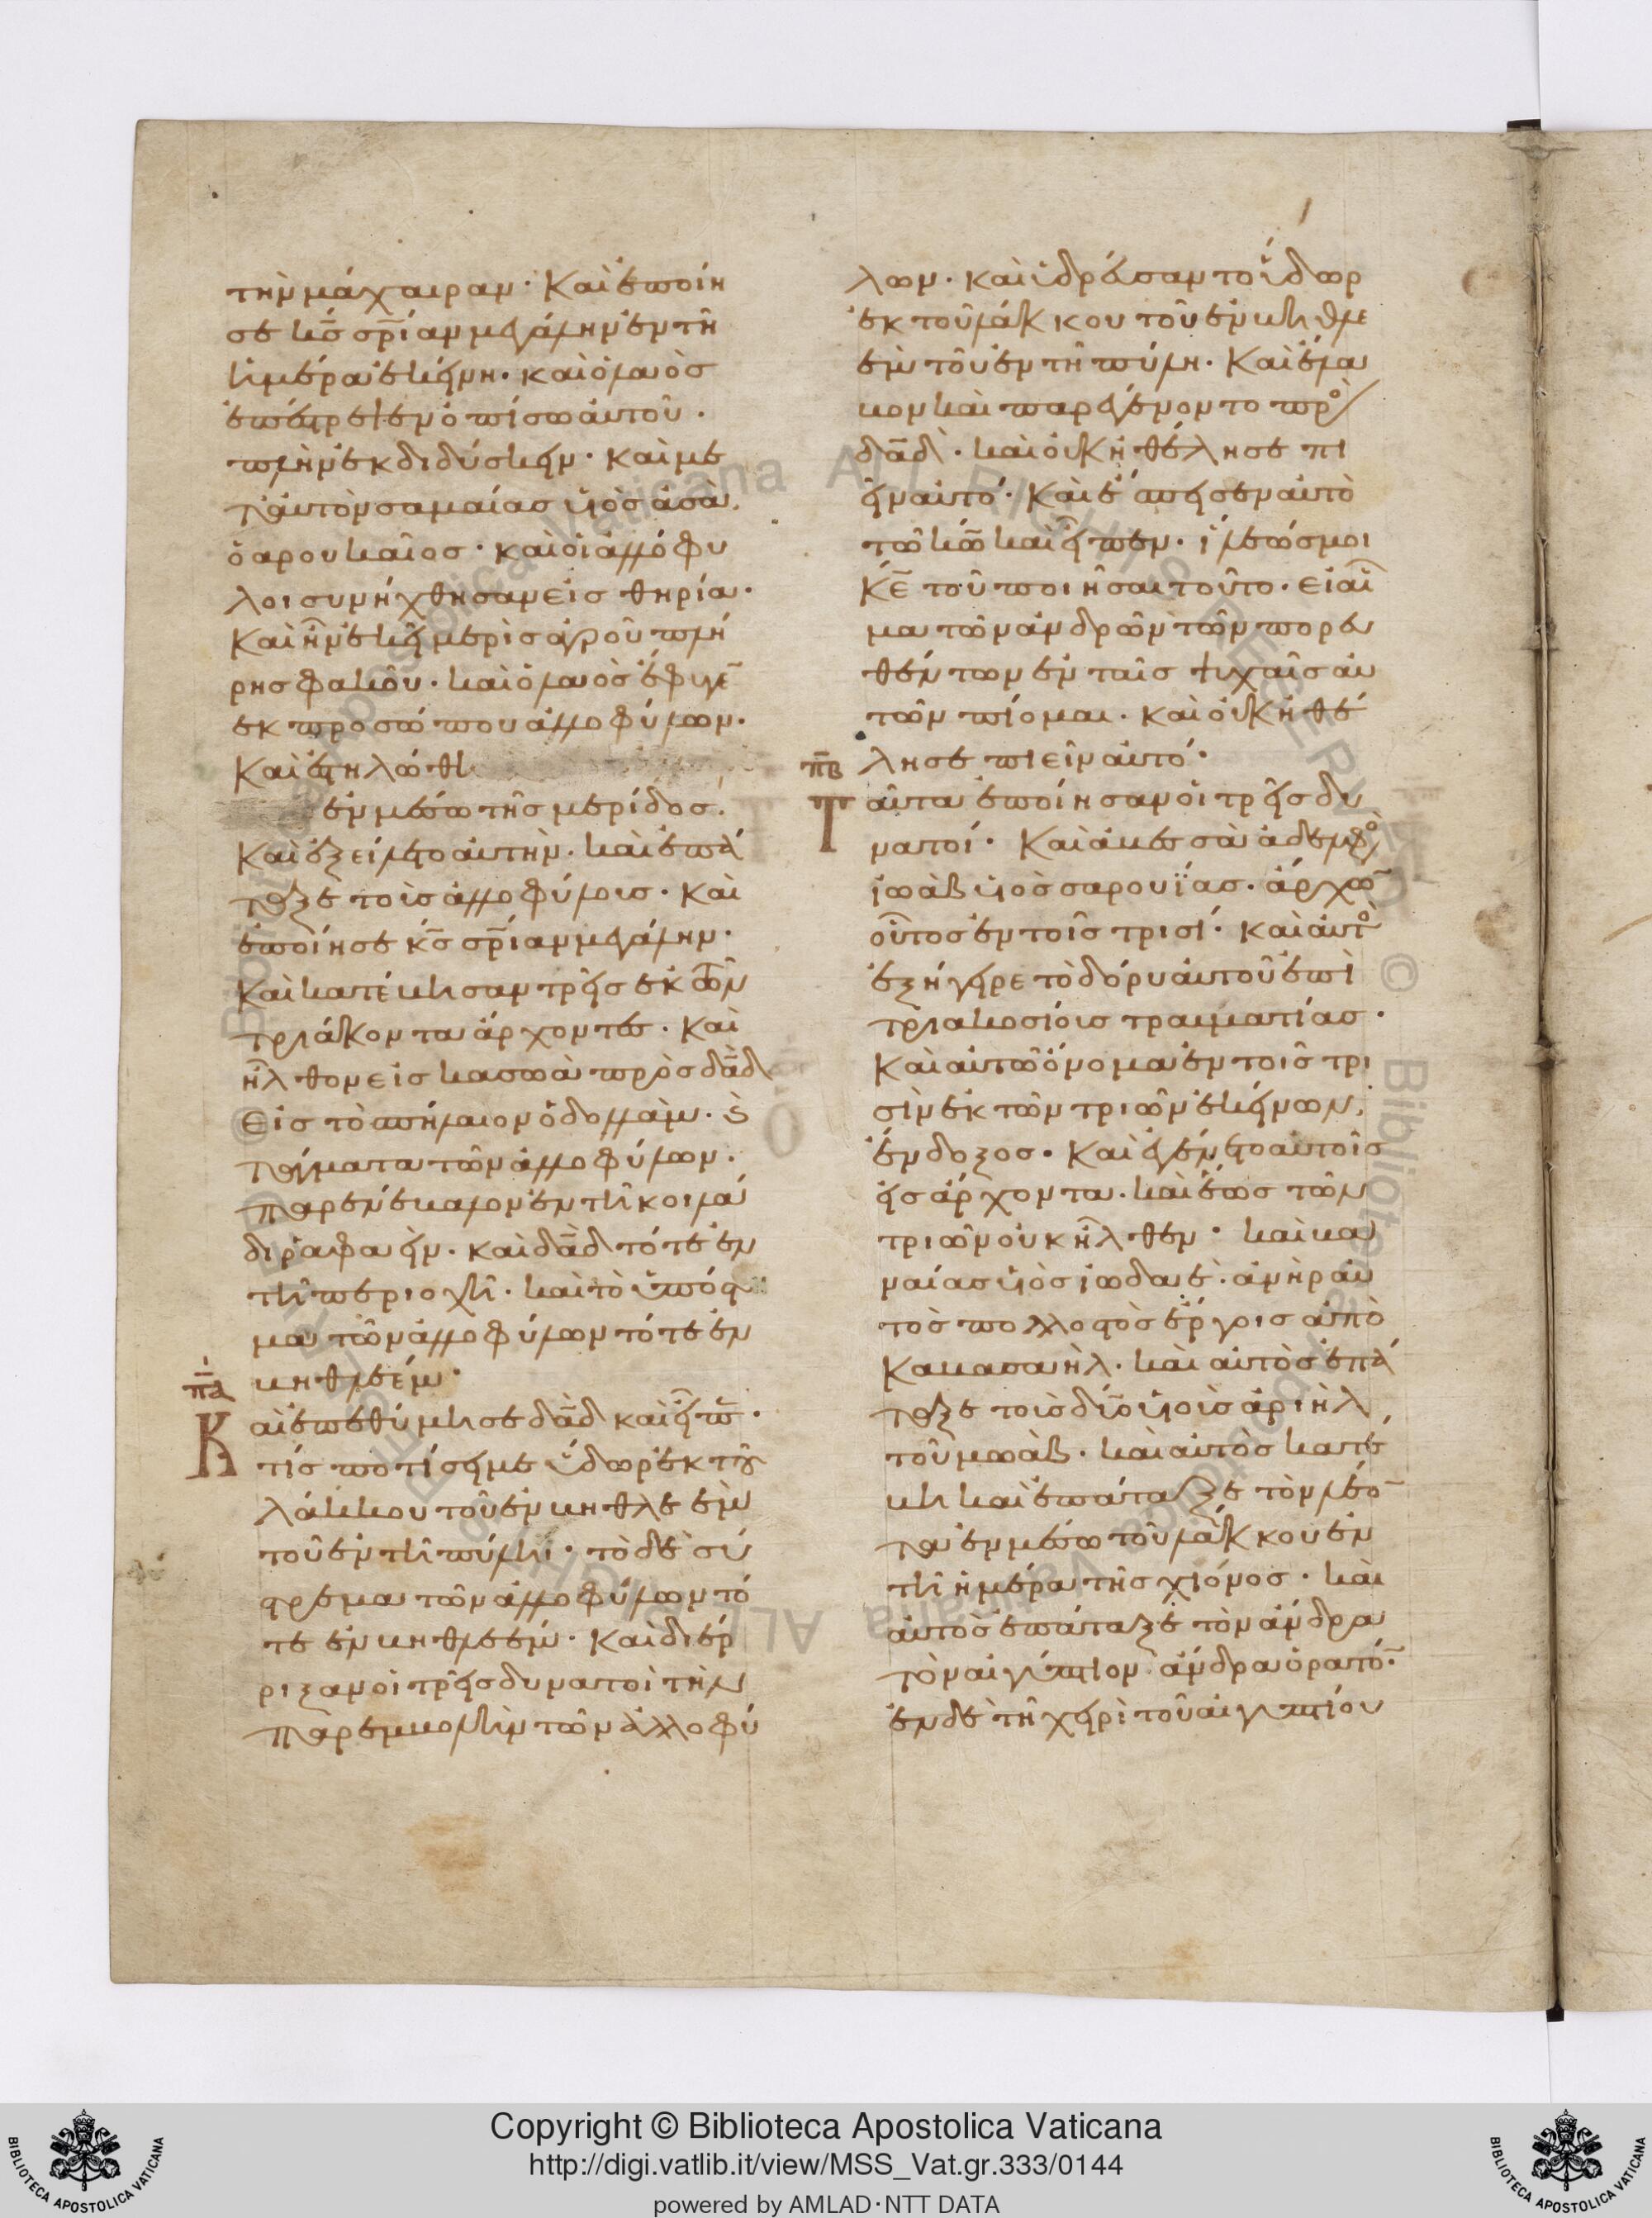 τὴν μάχαιραν· Καὶ ἐποίη
σε κ̅ς̅ σ̅ρ̅ίαν μεγάλην ἐν τῆ
ἡμέρα ἐκείνη· καὶ ὁ λαὸσ
ἐπέστρεψεν ὀπίσω αὐτοῦ·
πλὴν ἐκδιδύσκειν· Καὶ με
τ' αὐτὸν σαμαίασ υἱὸσ ἀσὰ.
ὁ αρουκαῖοσ· καὶ οἱ ἀλλόφυ
λοι συνήχθησαν εἰσ θηρία·
Καὶ ἦν ἐκεῖ μερὶσ ἀγροῦ πλή
ρησ φακοῦ· καὶ ὁ λαὸσ ἔφυγε̅
ἐκ προσώπου ἀλλοφύλων·
Καὶ ἐστηλώθη
ἐν μέσω τῆσ μερίδοσ.
Καὶ ἐξείλετο αὐτὴν· καὶ ἐπά
ταξε τοὶσ ἀλλοφύλοισ· Καὶ
ἐποίησε κ̅ς̅ σ̅ρ̅ιαν μεγάλην·
Καὶ κατέβησαν τρεῖσ ἐκ τῶν
τριάκοντα ἄρχοντεσ· Καὶ
ἦλθον εἰσ κασωὰ πρὸσ δ̅α̅δ̅
Εἰσ τὸ σπήλαιον ὀδολλὰμ· Ϛ
τάγματα τῶν ἀλλοφύλων·
παρενέβαλον ἐν τῆ κοιλά
δι ῥαφαειν· καὶ δ̅α̅δ̅ τότε ἐν
τῆ περιοχῆ· καὶ τὸ ὑπόστ
μα τῶν ἀλλοφύλων τότε ἐν
βηθλεέμ·
π̅α̅
Καὶ ἐπεθύμησε δ̅α̅δ̅ καὶ εἶπε̅·
τίσ ποτίσει με ὕδωρ ἐκ τοῦ
λάκκου τοῦ ἐν βηθλεεὲμ
τοῦ ἐν τῆ πύλη· τὸ δὲ σύ
στεμα τῶν ἀλλοφύλων τό
τε ἐν βηθλεέμ· Καὶ διέρ
ριξαν οἱ τρεῖσ δυνατοὶ τὴν
παρεμβολὴν τῶν ἀλλοφύ
λων· καὶ ὑδρεύσαν τὸ ὕδωρ
ἐκ τοῦ λάκκου τοῦ ἐν βηθλε
ὲμ τοῦ ἐν τῆ πύλη· Καὶ ἔλα
βον καὶ παρεγένοντο πρὸ
δ̅α̅δ̅· καὶ οὐκ ἠθέλησε πι
εῖν αὐτό· Καὶ ἔσπεισεν αὐτὸ
τῶ κ̅ω̅ καὶ εἶπεν· ἵλεώσ μοι
κ̅ε̅ τοῦ ποιῆσαι τοῦτο· εἰ αἷ
μα τῶν ἀνδρῶν τῶν πορευ
θέντων ἐν ταῖσ ψυχαῖσ αὐ
τῶν πίομαι· καὶ οὐκ ἠθέ
λησε πιεῖν αὐτό·
π̅β̅
Ταῦτα ἐποίησαν οἱ τρεῖσ δυ
νατοί· Καὶ ἀβεσσὰ ἀδελφὸ
ἰωὰβ υἱὸσ σαρουΐασ· ἄρχω̅
οὗτοσ ἐν τοῖσ τρισί· καὶ αὐτὸ
ἐξήγειρε τὸ δόρυ αὐτοῦ ἐπὶ
τριακοσίοισ τραυματίασ·
Καὶ αὐτῶ ὄνομα ἐν τοῖσ τρι
σὶν ἐκ τῶν τριῶν ἐκείνων.
ἔνδοξοσ· Καὶ ἐγένετο αὐτοῖσ
εἰσ ἄρχοντα· καὶ ἕωσ τῶν
τριῶν οὐκ ἦλθεν· καὶ βα
ναίασ υἱὸσ ἰωδαὲ· ἀνὴρ αὐ
τὸσ πολλοστὸσ ἔργοισ ἀπὸ
Καβασαὴλ· καὶ αὐτὸσ ἐπά
ταξε τοὶσ δύο υἱοὶσ ἀριὴλ
τοῦ μωάβ· καὶ αὐτὸσ κατέ
βη καὶ ἐπάταξε τὸν λέο̅
τα ἐν μέσω τοῦ λάκκου ἐν
τῆ ἡμέρα τῆσ χιόνοσ· καὶ
αὐτὸσ ἐπάταξε τὸν ἄνδρα
τὸν αἰγύπτιον ἄνδρα ὁρατό̅·
ἐν δὲ τῆ χειρὶ τοῦ αἰγυπτίου
Copyright © Biblioteca Apostolica Vaticana
http://digi.vatlib.it/view/MSS_Vat.gr.333/0144
powered by AMLAD·NTT DATA